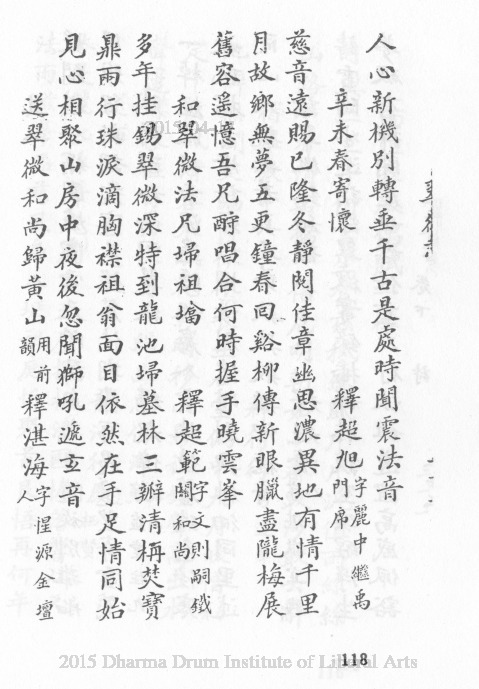 人心新機別轉垂千古是處時聞震法音
辛未春寄懷 釋超旭字麗中繼禹門席
慈音遠賜已隆冬靜閱佳章幽思濃異地有情千里
月故鄉無夢五更鐘春回谿柳傳新眼臘盡隴梅展
舊容遥憶吾兄酧唱合何時握手曉雲峯
和翠微法兄埽祖塔 釋超範字文則嗣鐵關和尚
多年挂錫翠微深特到龍池埽墓林三瓣清栴焚寶
鼎雨行珠淚滴胸襟祖翁面目依然在手足情同始
見心相聚山房中夜後忽聞獅吼遞玄音
送翠微和尚歸黃山用前韻 釋湛海字惺源金壇人
118
2015 Dharma Drum Institute of Liberal Arts